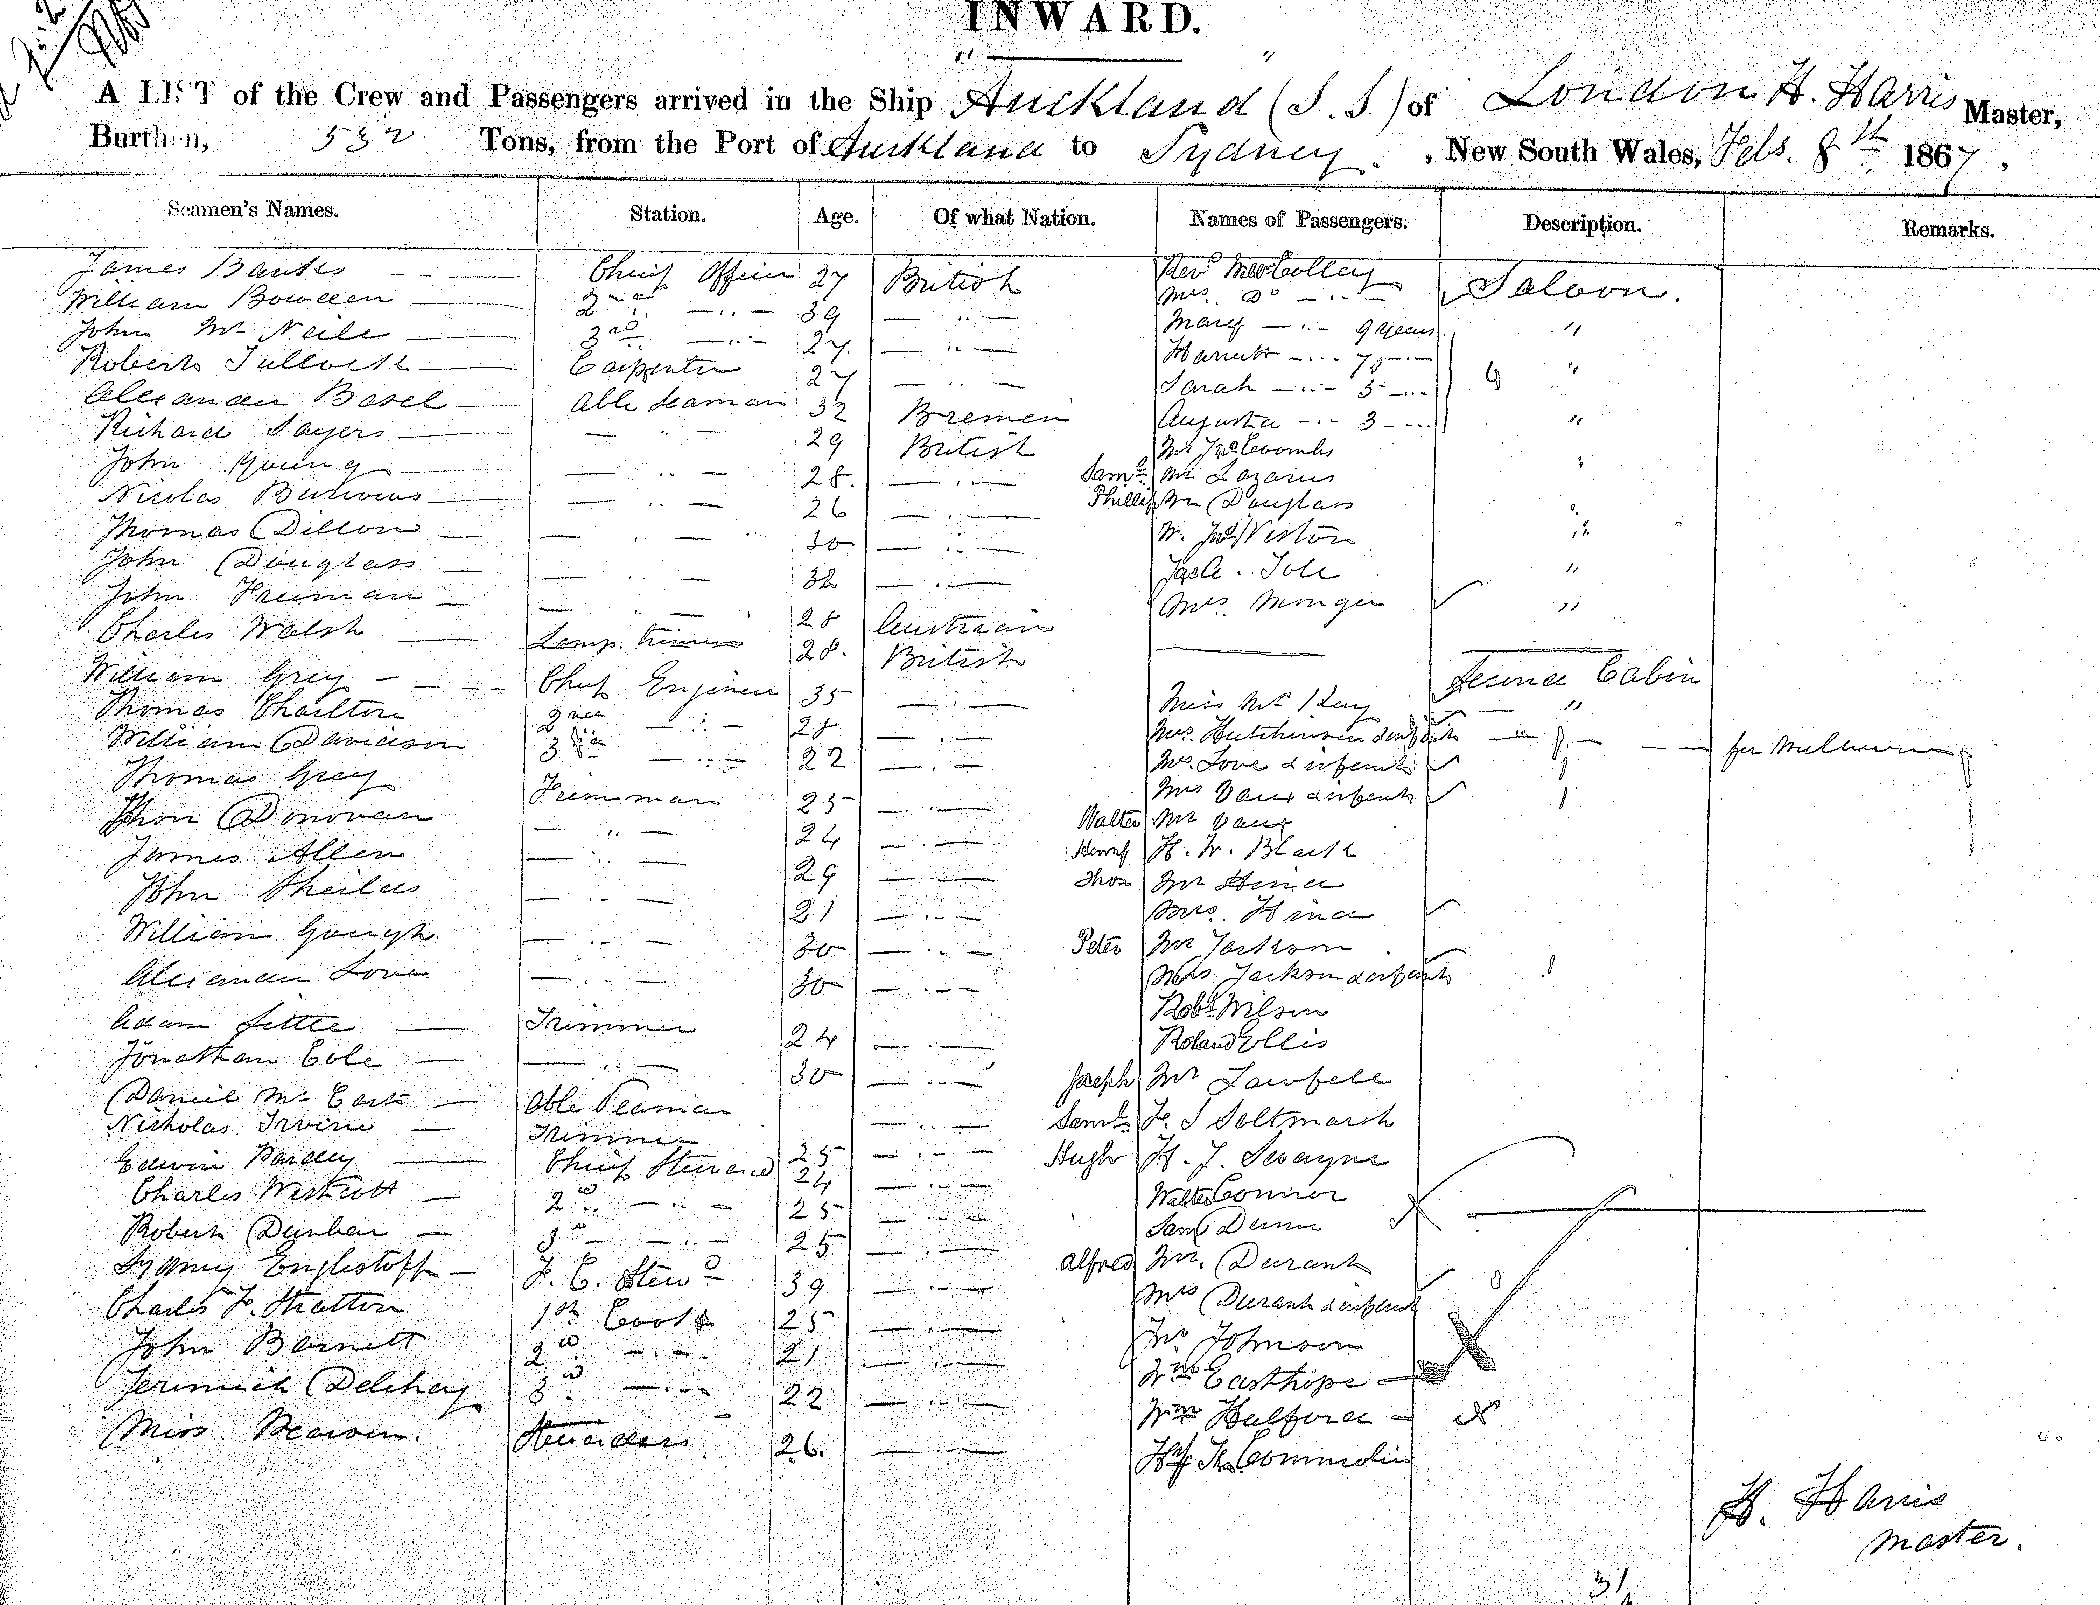 INWARD.
A LIST of the Crew and Passengers arrived in the Ship Auckland (S.S.) of London H. Harris Master,
Burthen, 532 Tons, from the Port of Auckland to Sydney. , New South Wales, Feb. 8th 1867,
Seamen's Names. Station. Age. Of what Nation. Names of Passengers. Description. Remarks.
James Banks Chief Officer 27 British Revd Colley Saloon.
William Bowden 2nd " 39 " Mrs. Do "
John Mc Neile 3rd " 27. " Mary " 9 years "
Robert Tulloch Carpenter 27 " Harriett " 7 " "
Alexander Basel Able Seaman 32 Bremen Sarah " 5 "
Richard Sayers " 29 British Augusta " 3 " "
John Young " 28. " Mr Coombs
Nicolas " 26 " Saml. Mr Lazarus "
Thomas Dillon " 30 " Phillip Mr Douglass
John Douglass " 32 " W. Weston "
John Freeman " 28 Austrian Tole "
Charles Walsh Lamp trimmer 28. British Mrs. Monger "
William Grey Chief Engineer 35 " Second Cabin
Thomas Charlton 2nd " 28 " Miss Mc Kay "
William Davidson 3rd " 22 " Mrs. Hutchinson & infant " for Melbourne
Thomas Grey Fireman 25 " Mrs. Love & infant
John Donovan " 24 " Mrs & infant
James Allen " 29 " Walter Mr
John Sheilds " 21 " Henry H. W. Black
William Gough " 30 " Thos Mr Hind
Alexander Love " 30 " Mrs. Hind
Adam Little Trimmer 24 " Peter Mr Jackson
Jonathan Cole " 30 " Mrs Jackson & infant
Daniel Mc Able Seaman " Robt Wilson
Nicholas Irvine Trimmer 25 " Roland Ellis
Edwin Chief Steward 24 " Joseph Mr
Charles Westcott 2d " 25 " Saml. F. S Saltmarsh
Robert Dunbar 3d " 25 " Hugh H. J.
Sydney Englestoff F. C. Stewd 39 " Walter Connor
Charles F. Stratton 1st Cook 25 " Saml Dunn
John Barnett 2d " 21 " Alfred Mr. Durant
Jerimiah Delehay 3d " 22 " Mrs Durant & infant
Miss Stewardess 26. " Mr Johnson
Wm Easthope
Wm Halford
Commelin
H. Harris
Master.
31